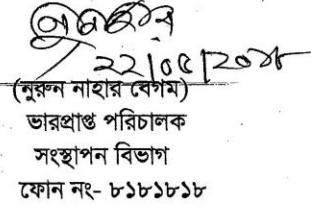 ২২/০৫/২০১৮
(নুরুন নাহার বেগম)
ভারপ্রাপ্ত পরিচালক
সংস্থাপন বিভাগ
ফোন নং- ৮১৮১৮১৮